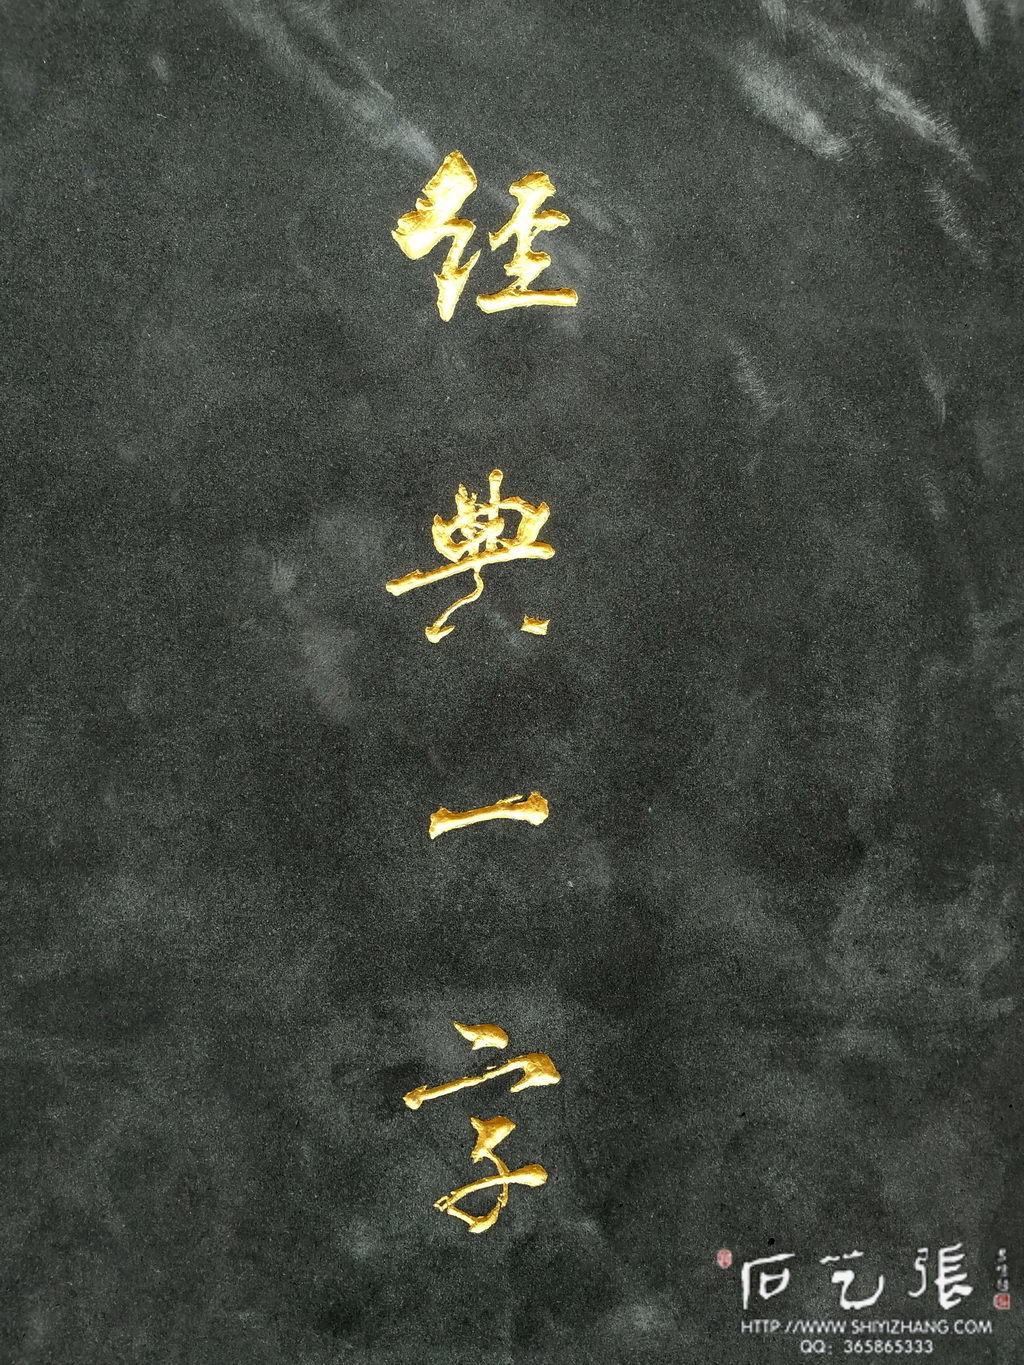 经典一字
石艺張
HTTP://WWW.SHIYIZHANG.COM
QQ: 365865333